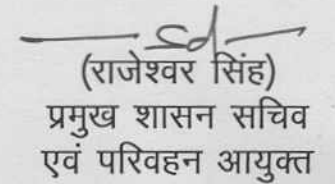 sd
(राजेश्वर सिंह)
प्रमुख शासन सचिव
एवं परिवहन आयुक्त